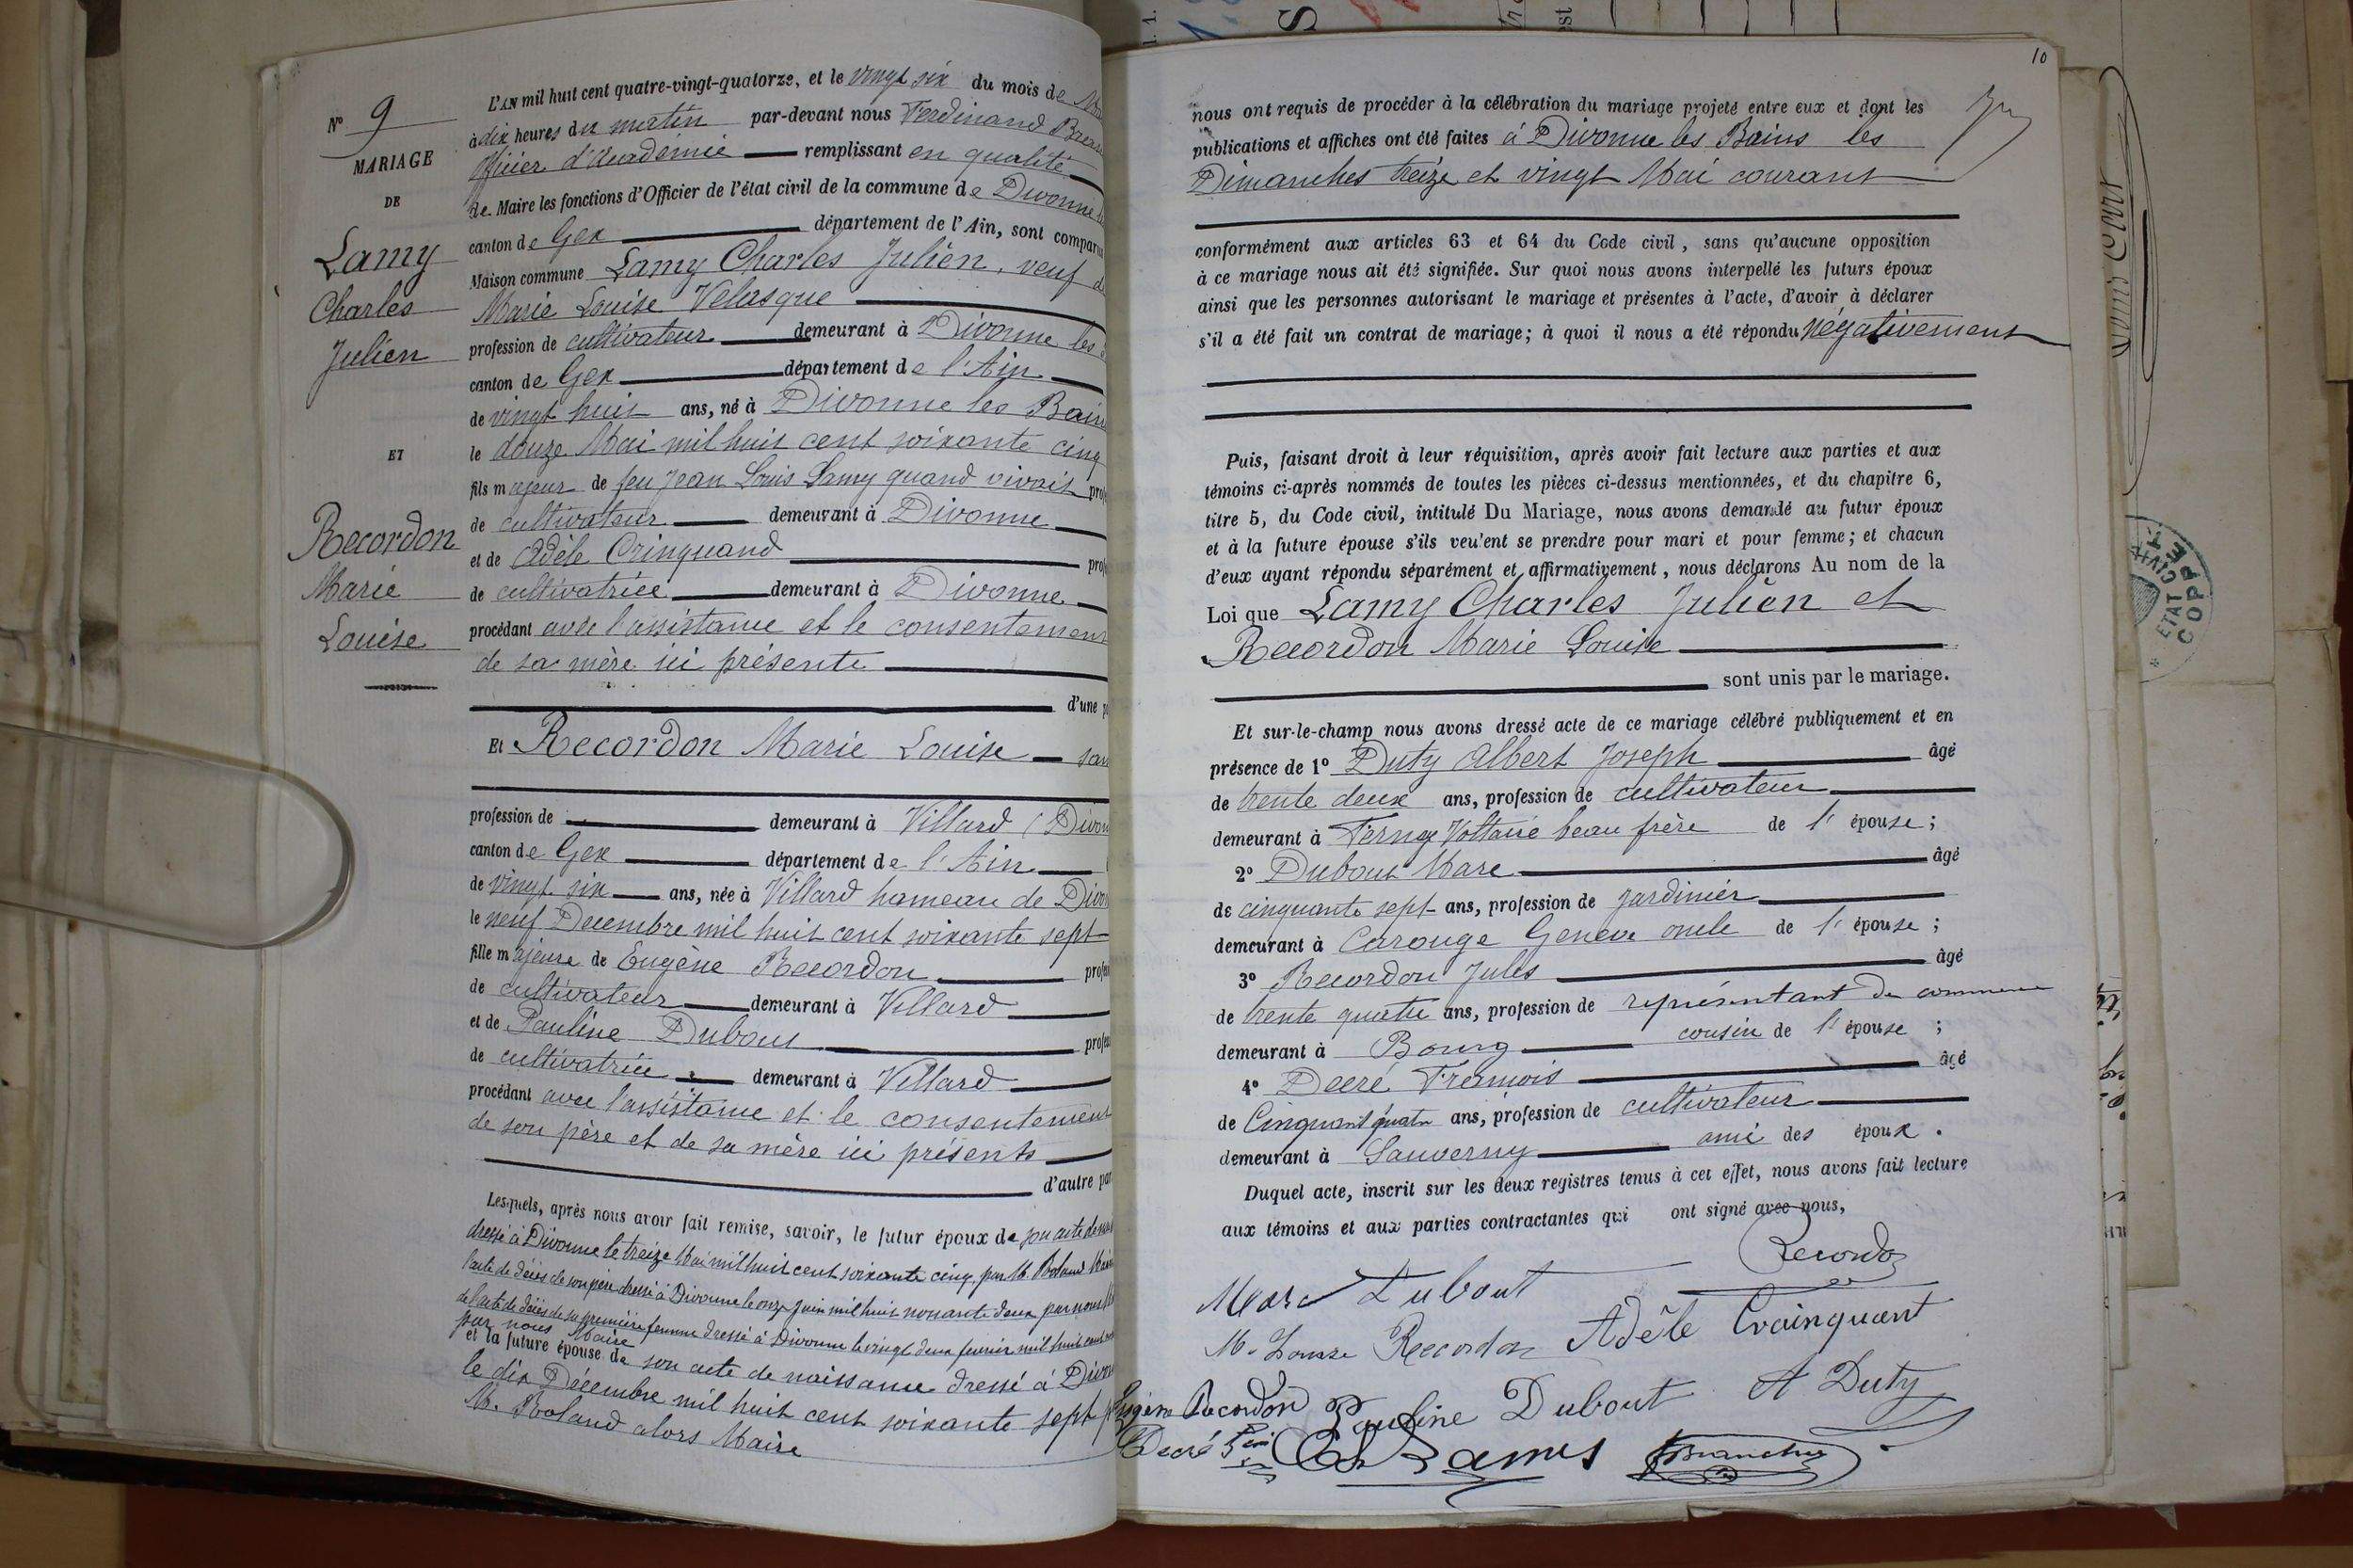 N° 9
MARIAGE
DE
Lamy
Charles
Julien
ET
Recordon
Marie
Louise
L'AN mil huit cent quatre-vingt-quatorze, et le vingt six du mois de
à dix heures du matin par-devant nous Ferdinand
Officier d'Académie remplissant en qualité
de Maire les fonctions d'Officier de l'état civil de la commune de Divonne
canton de Gex département de l'Ain, sont comparus
Maison commune Lamy Charles Julien, veuf de
Marie Louise Velasque
profession de cultivateur demeurant à Divonne les
canton de Gex département de l'Ain
de vingt huit ans, né à Divonne les Bains
le douze Mai mil huit cent soixante cinq
fils majeur de feu Jean Louis Lamy quand vivait prof
de cultivateur demeurant à Divonne
et de Adèle Crinquand prof
de cultivatrice demeurant à Divonne
procédant avec l'assistance et le consentement
de sa mère ici présente
d'une p
Et Recordon Marie Louise san
profession de demeurant à Villard (Divon
canton de Gex département de l'Ain
de vingt six ans, née à Villard hameau de Divon
le neuf Decembre mil huit cent soixante sept
fille majeure de Eugène Recordon profes
de cultivateur demeurant à Villard
et de Pauline Dubout profes
de cultivatrice demeurant à Villard
procédant avec l'assistance et le consentement
de son père et de sa mère ici présents
d'autre par
Lesquels, après nous avoir fait remise, savoir, le futur époux de son acte de
dressé à Divonne le treize Mai mil huit cent soixante cinq par M. Roland Maire
l'acte de décès de son père dressé à Divonne le onze Juin mil huit nonante deux par nous
de l'acte de décès de sa première femme dressé à Divonne le vingt deux fevrier mil huit cent
par nous Maire
et la future épouse de son acte de naissance dressé à Divon
le dix Décembre mil huit cent soixante sept p
M. Roland alors Maire
10
nous ont requis de procéder à la célébration du mariage projeté entre eux et dont les
publications et affiches ont été faites à Divonne les Bains les
Dimanches treize et vingt Mai courant
conformément aux articles 63 et 64 du Code civil, sans qu'aucune opposition
à ce mariage nous ait été signifiée. Sur quoi nous avons interpellé les futurs époux
ainsi que les personnes autorisant le mariage et présentes à l'acte, d'avoir à déclarer
s'il a été fait un contrat de mariage; à quoi il nous a été répondu négativement
Puis, faisant droit à leur réquisition, après avoir fait lecture aux parties et aux
témoins ci-après nommés de toutes les pièces ci-dessus mentionnées, et du chapitre 6,
titre 5, du Code civil, intitulé Du Mariage, nous avons demandé au futur époux
et à la future épouse s'ils veu'ent se prendre pour mari et pour femme; et chacun
d'eux ayant répondu séparément et affirmativement, nous déclarons Au nom de la
Loi que Lamy Charles Julien et
Recordon Marie Louise
sont unis par le mariage.
Et sur-le-champ nous avons dressé acte de ce mariage célébré publiquement et en
présence de 1° Duty Albert Joseph âgé
de trente deux ans, profession de cultivateur
demeurant à Ferney Voltaire beau frère de l'épouse;
2° Dubout Marc âgé
de cinquante sept ans, profession de jardinier
demeurant à Carouge Genève oncle de l'épouse;
3° Recordon Jules âgé
de trente quatre ans, profession de représentant de commerce
demeurant à Bourg cousin de l'épouse;
4° Decré François âgé
de Cinquant quatre ans, profession de cultivateur
demeurant à Sauverny ami des époux.
Duquel acte, inscrit sur les deux registres tenus à cet effet, nous avons fait lecture
aux témoins et aux parties contractantes qui ont signé avec nous,
Recordon
Marc Dubout
M. Louise Recordon Adèle Crainquant
Eugène Recordon Pauline Dubout A Duty
Decré Ch Lamy
ETAT CIVIL
COPPET